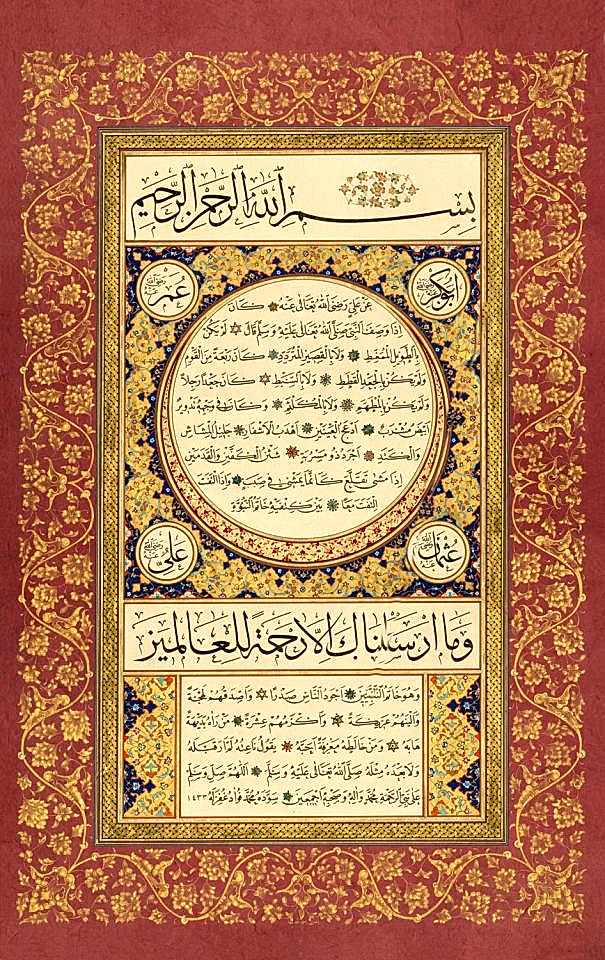 بِسْمِ اللهِ الرَّحْمٰنِ الرَّحِيمِ
ابوبكر رضي الله عنه
عمر رضي الله عنه
عَنْ عَلِيٍّ رَضِيَ اللهُ تَعَالٰى عَنْهُ كَانَ
إِذَا وَصَفَ النَّبِيَّ صَلَّى اللهُ تَعَالٰى عَلَيْهِ وَسَلَّمَ قَالَ لَمْ يَكُنْ
بِالطَّوِيلِ الْمُمَّغِطِ وَلَا بِالْقَصِيرِ الْمُتَرَدِّدِ كَانَ رَبْعَةً مِنَ الْقَوْمِ
وَلَمْ يَكُنْ بِالْجَعْدِ الْقَطَطِ وَلَا بِالسَّبِطِ كَانَ جَعْدًا رَجِلًا
وَلَمْ يَكُنْ بِالْمُطَهَّمِ وَلَا بِالْمُكَلْثَمِ وَكَانَ فِي وَجْهِهِ تَدْوِيرٌ
أَبْيَضُ مُشْرَبٌ أَدْعَجُ الْعَيْنَيْنِ أَهْدَبُ الْأَشْفَارِ جَلِيلُ الْمُشَاشِ
وَالْكَتَدِ أَجْرَدُ ذُو مَسْرُبَةٍ شَثْنُ الْكَفَّيْنِ وَالْقَدَمَيْنِ
إِذَا مَشٰى تَقَلَّعَ كَأَنَّمَا يَمْشِي فِي صَبَبٍ وَإِذَا الْتَفَتَ
الْتَفَتَ مَعًا بَيْنَ كَتِفَيْهِ خَاتَمُ النُّبُوَّةِ
عثمان رضي الله عنه
علي رضي الله عنه
وَمَا أَرْسَلْنَاكَ إِلَّا رَحْمَةً لِلْعَالَمِينَ
وَهُوَ خَاتَمُ النَّبِيِّينَ أَجْوَدُ النَّاسِ صَدْرًا وَأَصْدَقُهُمْ لَهْجَةً
وَأَلْيَنُهُمْ عَرِيكَةً وَأَكْرَمُهُمْ عِشْرَةً مَنْ رَآهُ بَدِيهَةً
هَابَهُ وَمَنْ خَالَطَهُ مَعْرِفَةً أَحَبَّهُ يَقُولُ نَاعِتُهُ لَمْ أَرَ قَبْلَهُ
وَلَا بَعْدَهُ مِثْلَهُ صَلَّى اللهُ تَعَالٰى عَلَيْهِ وَسَلَّمَ اَللّٰهُمَّ صَلِّ وَسَلِّمْ
عَلٰى نَبِيِّ الرَّحْمَةِ مُحَمَّدٍ وَآلِهِ وَصَحْبِهِ أَجْمَعِينَ سَوَّدَهُ مُحَمَّد فُؤَاد غُفِرَ لَهُ ١٤٣٣